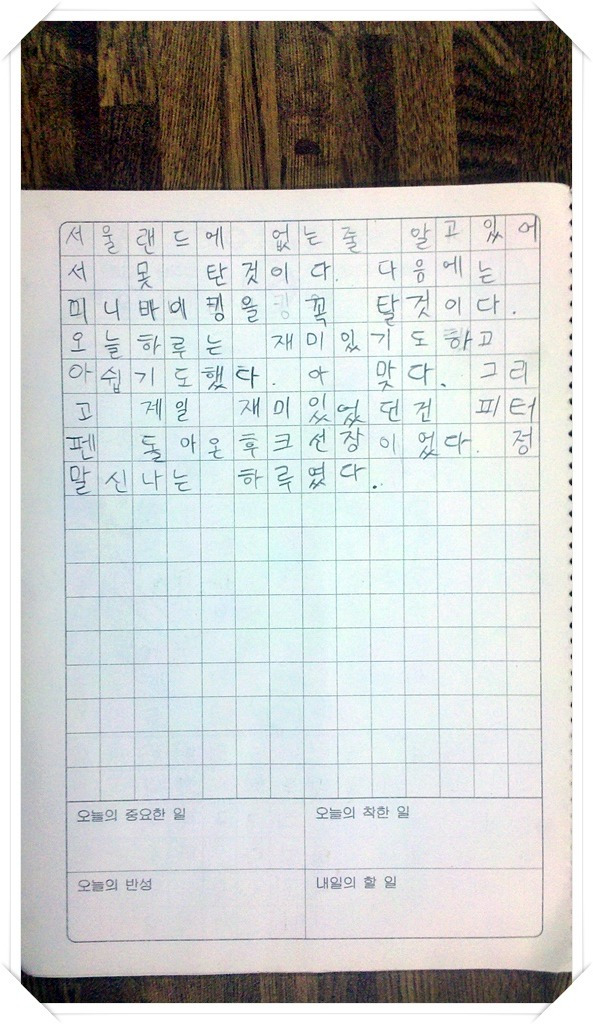 서울랜드에 없는줄 알고있어
서 못 탄것이다. 다음에는
미니바이킹을 꼭 탈것이다.
오늘하루는 재미있기도하고
아쉽기도했다. 아 맞다. 그리
고 제일 재미있었던건 피터
펜 돌아온후크선장이었다. 정
말신나는 하루였다.
오늘의 중요한 일
오늘의 착한 일
오늘의 반성
내일의 할 일